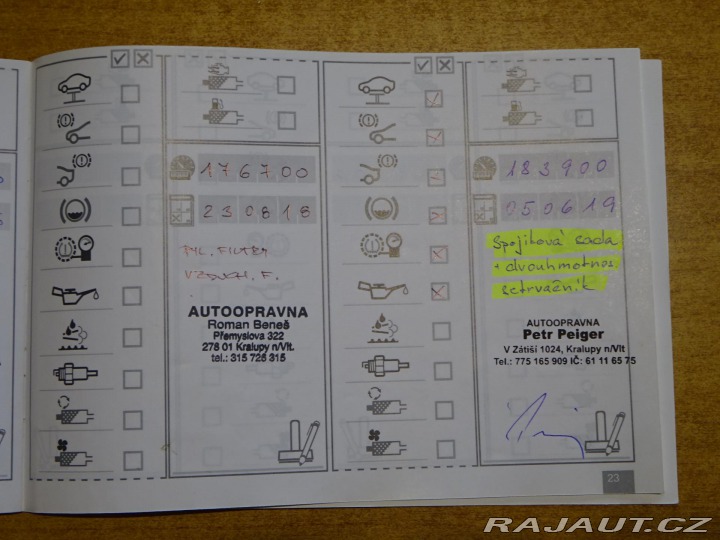 176700
230818
PYL. FILTRY
VZDUCH. F.
AUTOOPRAVNA
Roman Beneš
Přemyslova 322
278 01 Kralupy n/Vlt.
tel.: 315 726 315
183900
050619
Spojková sada
+ dvouhmotnos.
setrvačník
AUTOOPRAVNA
Petr Peiger
V Zátiší 1024, Kralupy n/Vlt
Tel.: 775 165 909 IČ: 61 11 65 75
23
RAJAUT.CZ